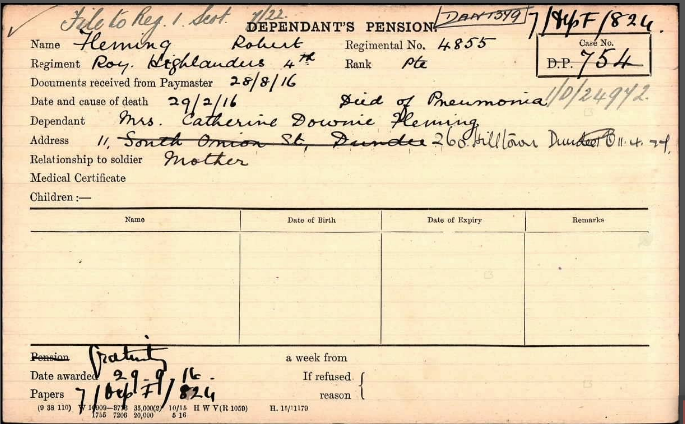 File to Reg. 1. Scot. 7/22.
DEPENDANT'S PENSION. DAN1379 7/Dep F/824.
Name Fleming Robert Regimental No. 4855 Case No.
Regiment Roy. Highlanders 4th Rank Pte D.P. 754
Documents received from Paymaster 28/8/16
Date and cause of death 29/2/16 Died of Pneumonia 1/D/24972.
Dependant Mrs. Catherine Downie Fleming
Address 11, South Union St, Dundee 260 Hilltown Dundee 11.4.24.
Relationship to soldier Mother
Medical Certificate
Children :—
Name Date of Birth Date of Expiry Remarks
Pension Gratuity a week from
Date awarded 29.9.16. If refused
Papers 7/Dep F/824 reason
(9 38 110) W 10009—8773 35,000(2) 10/15 H W V(R 1059) H. 15/1179
1755 7206 20,000 5 16